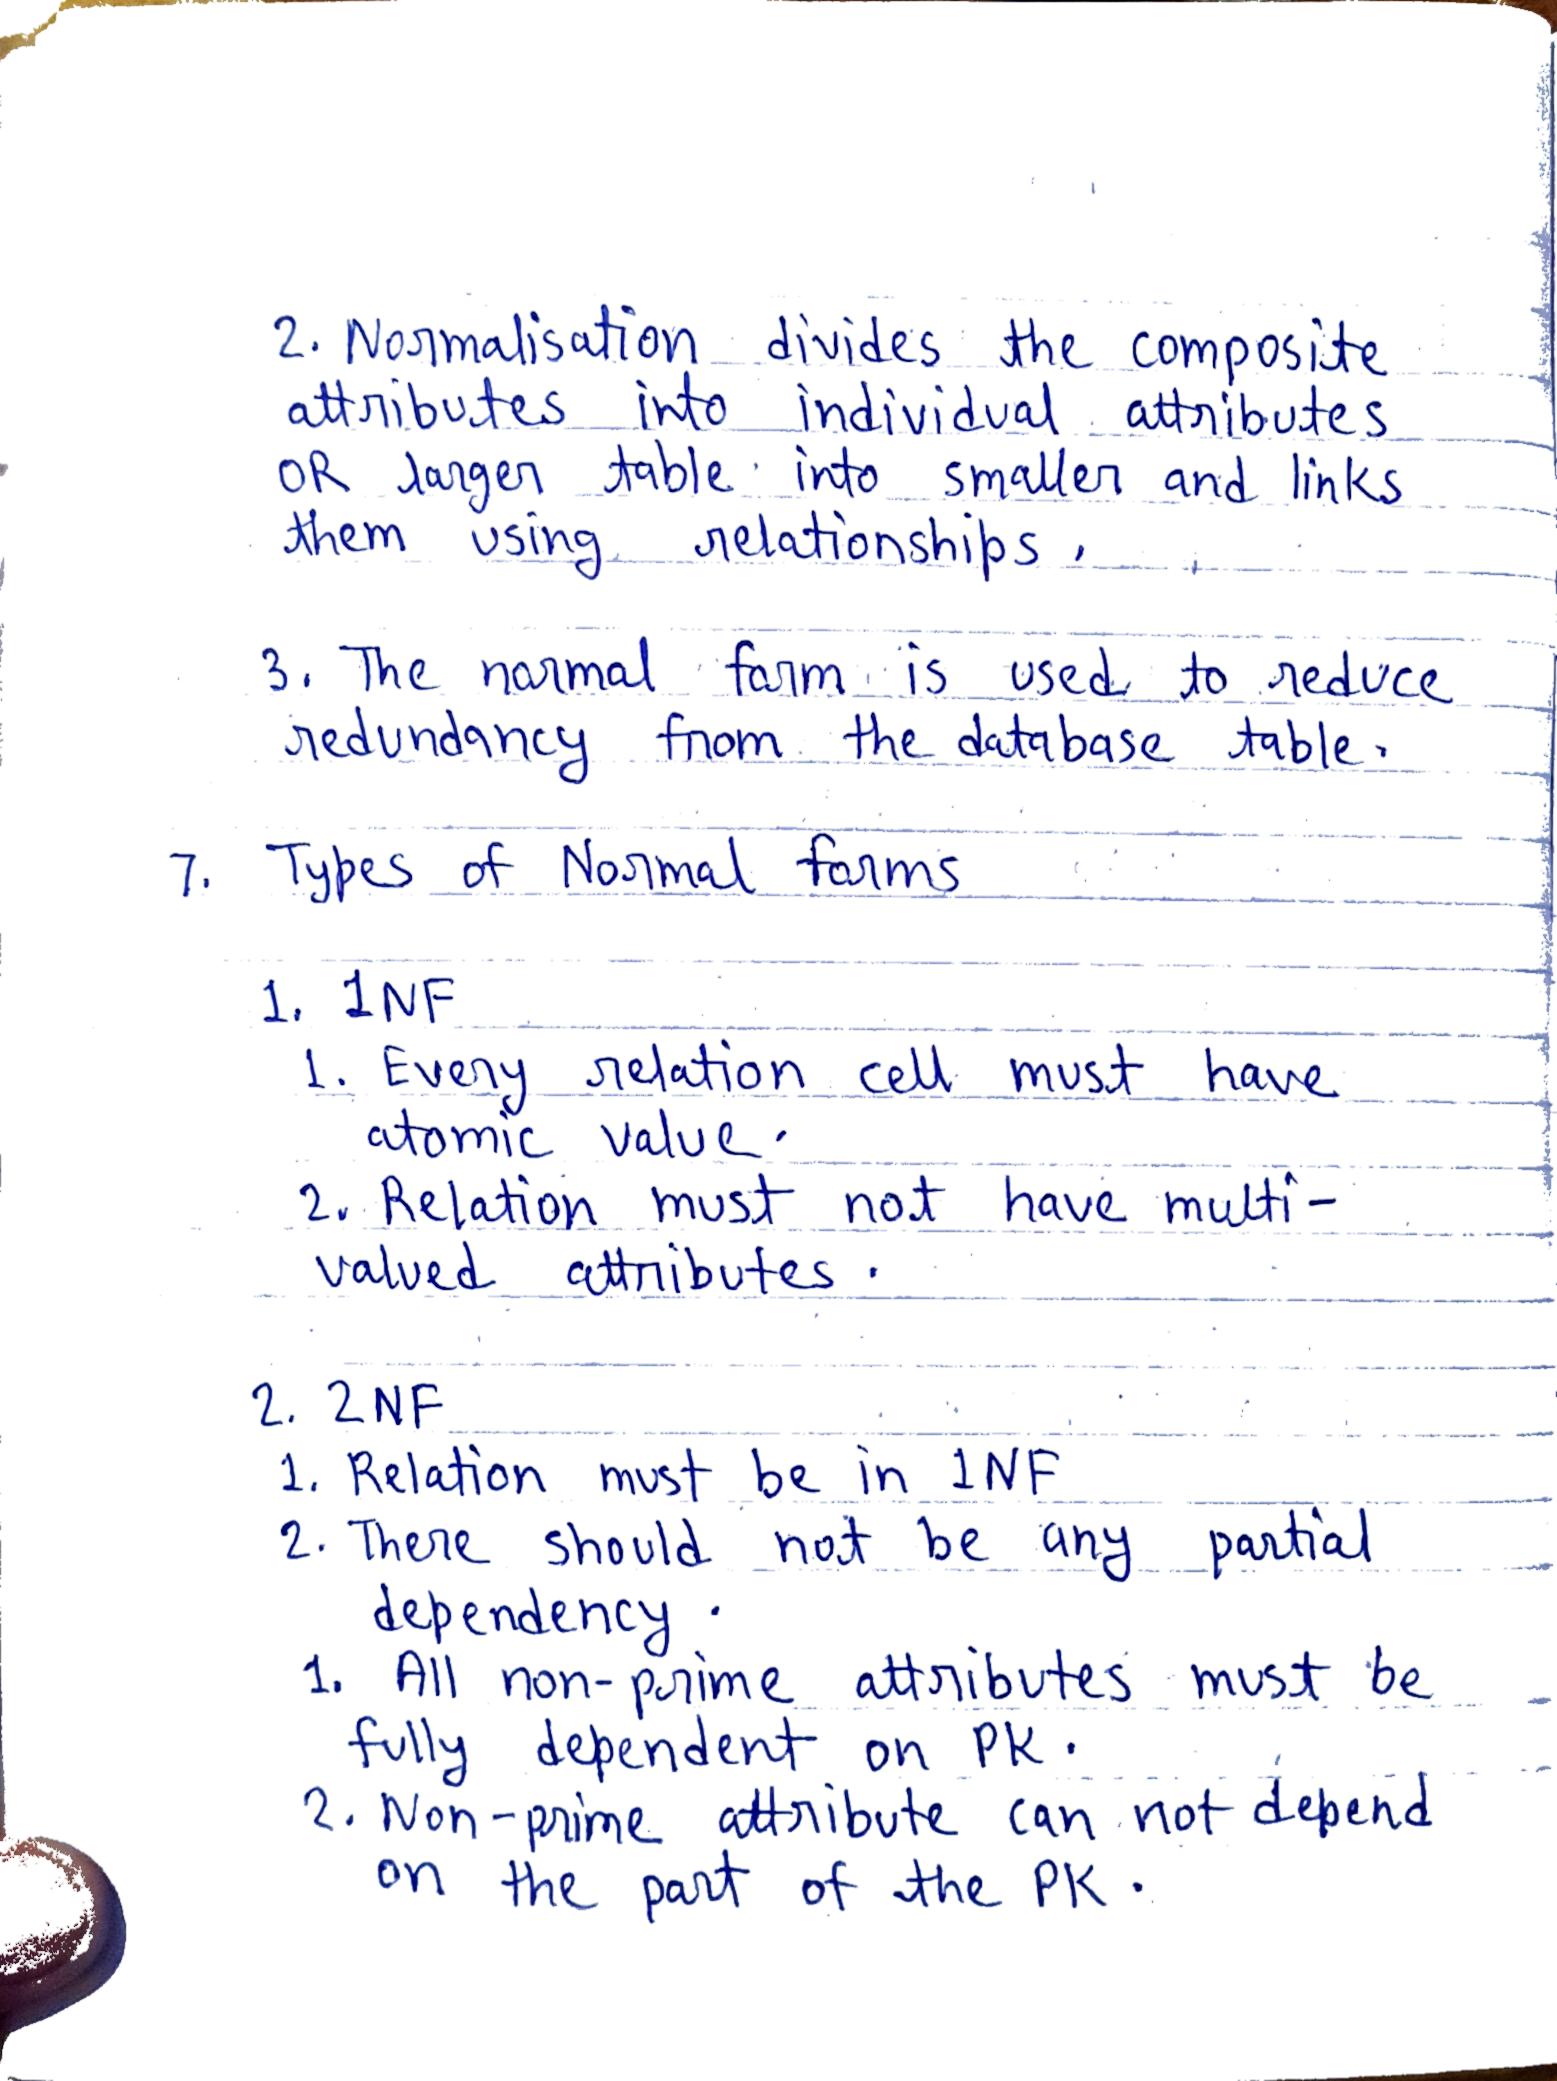 2. Normalisation divides the composite
attributes into individual attributes
OR larger table into smaller and links
them using relationships.
3. The normal form is used to reduce
redundancy from the database table.
7. Types of Normal forms
1. 1NF
1. Every relation cell must have
atomic value.
2. Relation must not have multi-
valued attributes.
2. 2NF
1. Relation must be in 1NF
2. There should not be any partial
dependency.
1. All non-prime attributes must be
fully dependent on PK.
2. Non-prime attribute can not depend
on the part of the PK.